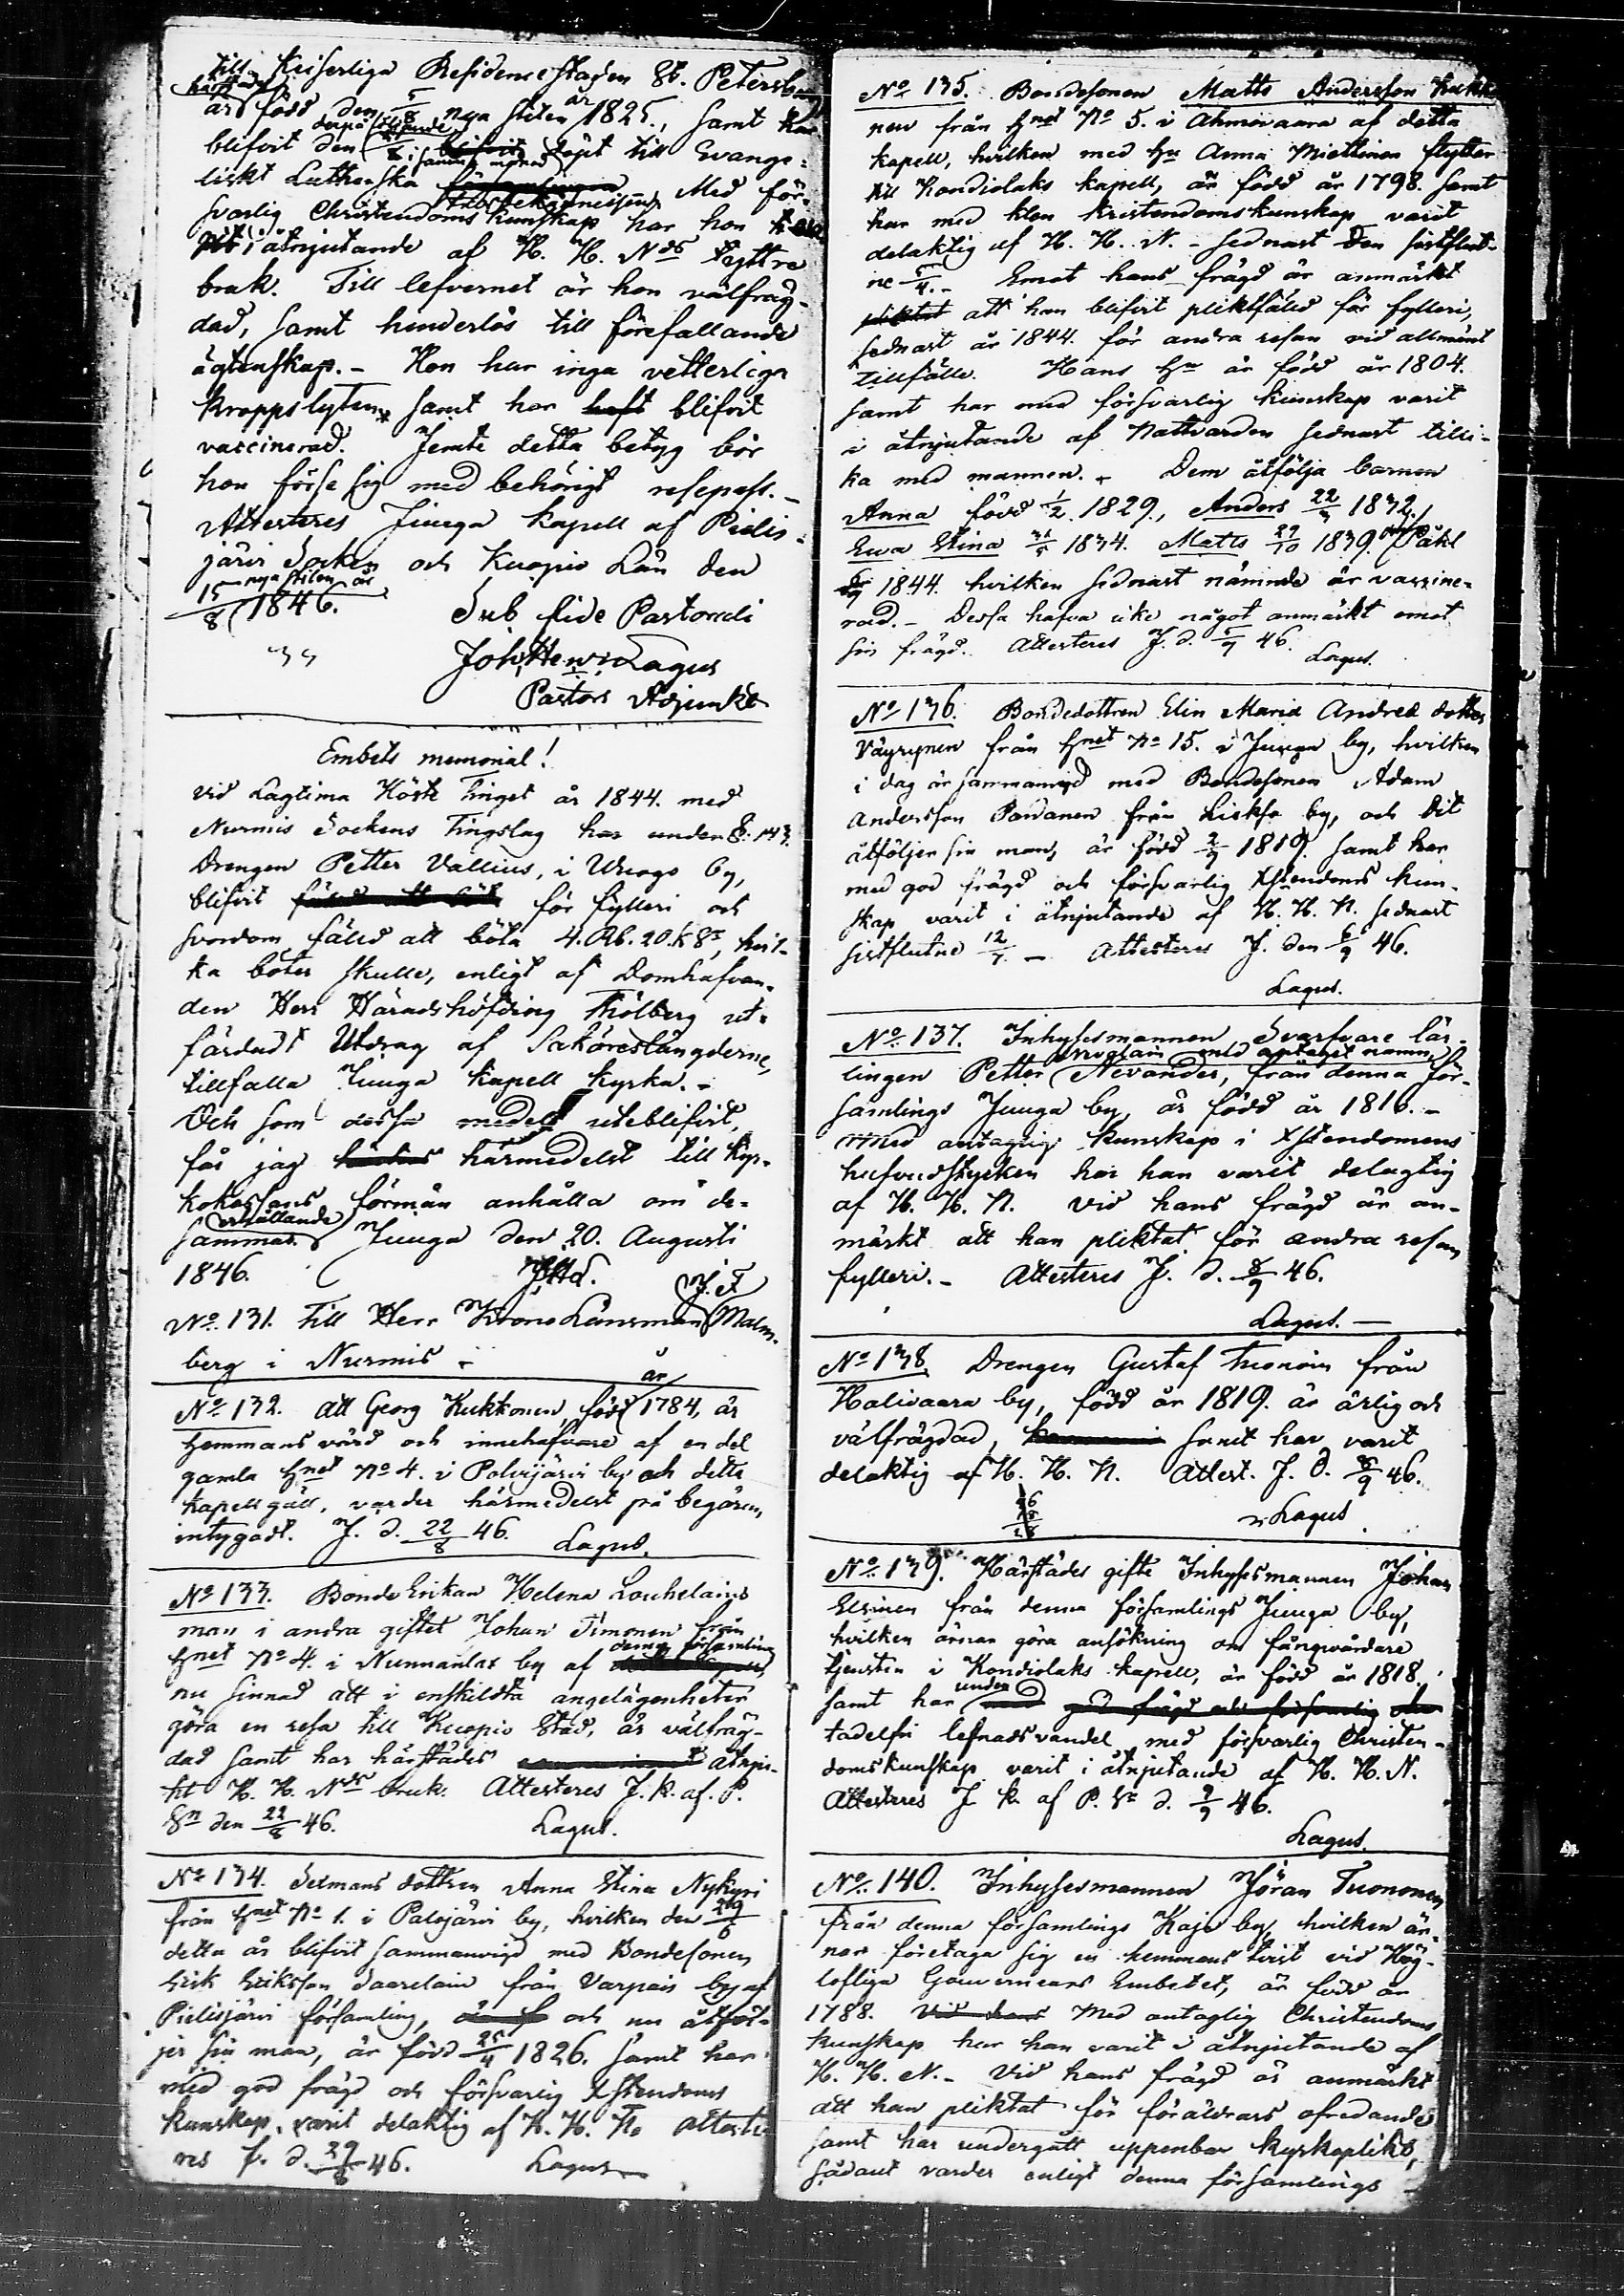 till Keiserliga Residence staden St. Petersburg
är född den 5/8 nya stilen år 1825, samt har
blifvit den derpå följande 8 i samma månad döpt till Evange-
liskt Lutherska Trosbekännelsen. Med för-
svarlig Christendoms kunskap har hon
i åtnjutande af H. H. Nds yttre
bruk. Till lefvernet är hon välfräg-
dad, samt hinderlös till förefallande
ägtenskap. - Hon har inga vetterliga
kroppslyten, samt har haft blifvit
vaccinerad. Jemte detta betyg bör
hon förse sig med behörigt resepass. -
Attesteres Juuga kapell af Pielis-
järvi Socken och Kuopio Län den
15/8 nya stilen år 1846.
Sub fide Pastorali
Joh. Henr. Lagus
Pastors Adjunkt
Embets memorial!
Vid Lagtima Höste Tinget år 1844 med
Nurmis Sockens Tingslag har under §: 143.
Drengen Petter Vallius, i Uruogo by,
blifvit för fylleri och
svordom fälld att böta 4. Rb. 20. k Sr, hvil-
ka böter skulle, enligt af Domhafvan-
den Herr Häradshöfding Thölberg ut-
färdadt Utdrag af Saköreslängderne,
tillfalla Juuga kapell kyrka. -
Och som dessa medel uteblifvit,
får jag härmedelst till kyr-
kokassans förmån anhålla om de-
sammas erhållande. Juuga den 20. Augusti
1846. JHL.
No. 131. Till Herr Krono Länsman J. F. Malm-
berg i Nurmis -
No. 132. Att Georg Kukkonen, född år 1784, är
hemmans värd och innehafvare af en del
gamla Hnet No 4. i Polvijärvi by och detta
kapell gäll, varder härmedelst på begäran,
intygadt. J. d. 22/8 46. Lagus.
No 133. Bonde Enkan Helena Louhelainens
man i andra giftet Johan Timonen från
Hnet No 4. i Nunnanlax by af denna församling
nu sinnad att i enskildta angelägenheter
göra en resa till Kuopio Stad, är välfräg-
dad samt har härstädes åtnju-
tit H. H. Nds bruk. Attesteres J. k. af. P.
Sn den 22/8 46. Lagus.
No 134. Sexmans dottren Anna Stina Nykyri
från Hnet No 1. i Palojärvi by, hvilken den 29/8
detta år blifvit sammanvigd med Bondesonen
Erik Eriksson Saarelain från Varpais by af
Pielisjärvi församling, och nu åtföl-
jer sin man, är född 25/4 1826. samt har
med god frägd och försvarlig Xstendoms
kunskap, varit delaktig af H. H. N. atteste-
res J. d. 29/8 46. Lagus
No 135. Bondesonen Matts Andersson Kukko-
nen från Hnet No 5. i Ahmovaara af detta
kapell, hvilken med Hu Anna Miettinen flytter
till Kondiolaks kapell, är född år 1798. samt
har med klen kristendomskunskap varit
delaktig af H. H. N. - sednast den sistflut-
ne 5/4. - Emot hans frägd är anmärkt
att han blifvit pliktfälld för fylleri,
sednast år 1844. för andra resan vid allmänt
tillfälle. Hans Hu är född år 1804.
samt har med försvarlig kunskap varit
i åtnjutande af Nattvarden sednast tilli-
ka med mannen. - Dem åtfölja barnen
Anna född 1/2 1829, Anders 22/3 1832,
Ewa Stina 31/5 1834. Matts 27/10 1839. och Påhl
1844. hvilken sednast nämnde är vaccine-
rad. - Dessa hafva icke något anmärkt emot
sin frägd. Attesteres J. d. 5/9 46.
Lagus.
No 136. Bondedottren Elin Maria Andrea dotter
Väyrynen från Hnet No 15. i Juuga by, hvilken
i dag är sammanvigd med Bondesonen Adam
Andersson Pardanen från Lieksa by, och dit
åtföljer sin man, är född 2/9 1819. samt har
med god frägd och försvarlig Xstendoms kun-
skap varit i åtnjutande af H. H. N. sednast
sistflutne 12/7. - Attesteres J. den 6/9 46.
Lagus.
No. 137. Inhysesmannen Svarfvare lär-
lingen Petter Nevalain med antaget namn Nevander, från denna för-
samlings Juuga by, är född år 1816. -
Med antaglig kunskap i Xstendomens
hufvudstycken har han varit delagtig
af H. H. N. Vid hans frägd är an-
märkt att han pliktat för andra resan
fylleri. - Attesteres J. d. 8/9 46.
Lagus. -
No 138. Drengen Gustaf Tuonoin från
Halivaara by, född år 1819. är ärlig och
välfrägdad, samt har varit
delaktig af H. H. N. Attest. J. d. 8/9 46.
Lagus
No. 139. Härstädes gifte Inhysesmannen Johan
Elsinen från denna församlings Juuga by,
hvilken ärnar göra ansökning om fångvårdare
tjensten i Kondiolaks kapell, är född år 1818.
samt har under med god frägd och försvarlig o-
tadelfri lefnadsvandel med försvarlig Christen-
domskunskap varit i åtnjutande af H. H. N.
Attesteres J k. af P. Sn d. 9/9 46.
Lagus.
No. 140. Inhysesmannen Jöran Tuononen,
från denna församlings Kajo by, hvilken är-
nar företaga sig en hemmans tvist vid Hög-
lofliga Gouverneurs Embetet, är född år
1788. Vid hans Med antaglig Christendoms
kunskap har han varit i åtnjutande af
H. H. N. - Vid hans frägd är anmärkt
att han pliktat för föräldrars ofredande
samt har undergått uppenbar kyrkoplikt,
sådant varder enligt denna församlings